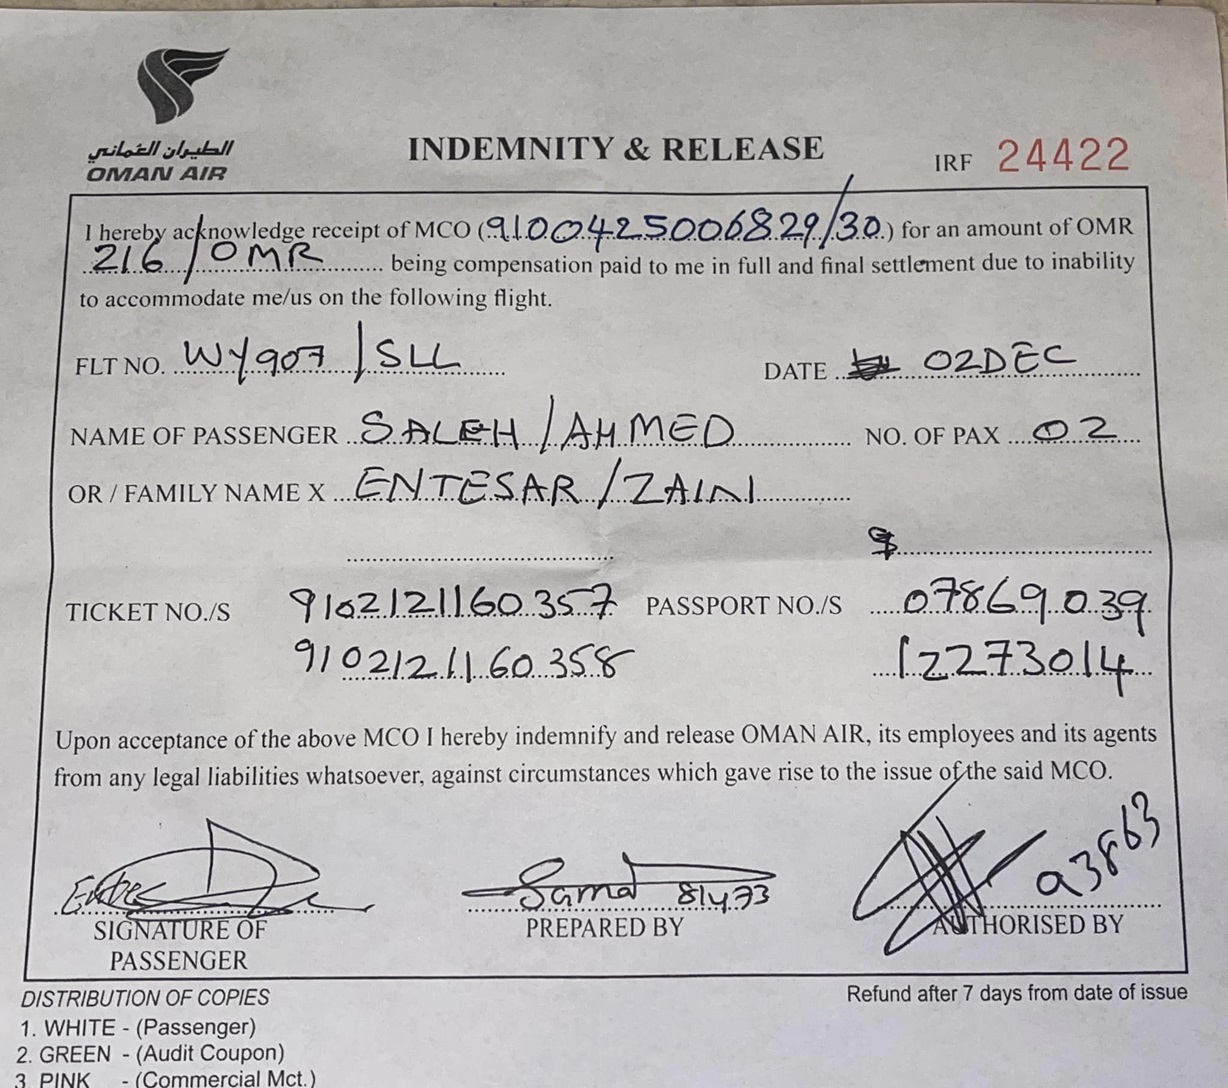 الطيران العُماني
OMAN AIR
INDEMNITY & RELEASE
IRF 24422
I hereby acknowledge receipt of MCO (9100425006829/30) for an amount of OMR
216/OMR being compensation paid to me in full and final settlement due to inability
to accommodate me/us on the following flight.
FLT NO. WY907/SLL DATE 02DEC
NAME OF PASSENGER SALEH/AHMED NO. OF PAX 02
OR / FAMILY NAME X ENTESAR/ZAINI
TICKET NO./S 9102121160357 PASSPORT NO./S 07869039
9102121160358 12273014
Upon acceptance of the above MCO I hereby indemnify and release OMAN AIR, its employees and its agents
from any legal liabilities whatsoever, against circumstances which gave rise to the issue of the said MCO.
81473 a3863
SIGNATURE OF PASSENGER
PREPARED BY
AUTHORISED BY
DISTRIBUTION OF COPIES
Refund after 7 days from date of issue
1. WHITE - (Passenger)
2. GREEN - (Audit Coupon)
3 PINK - (Commercial Mct.)